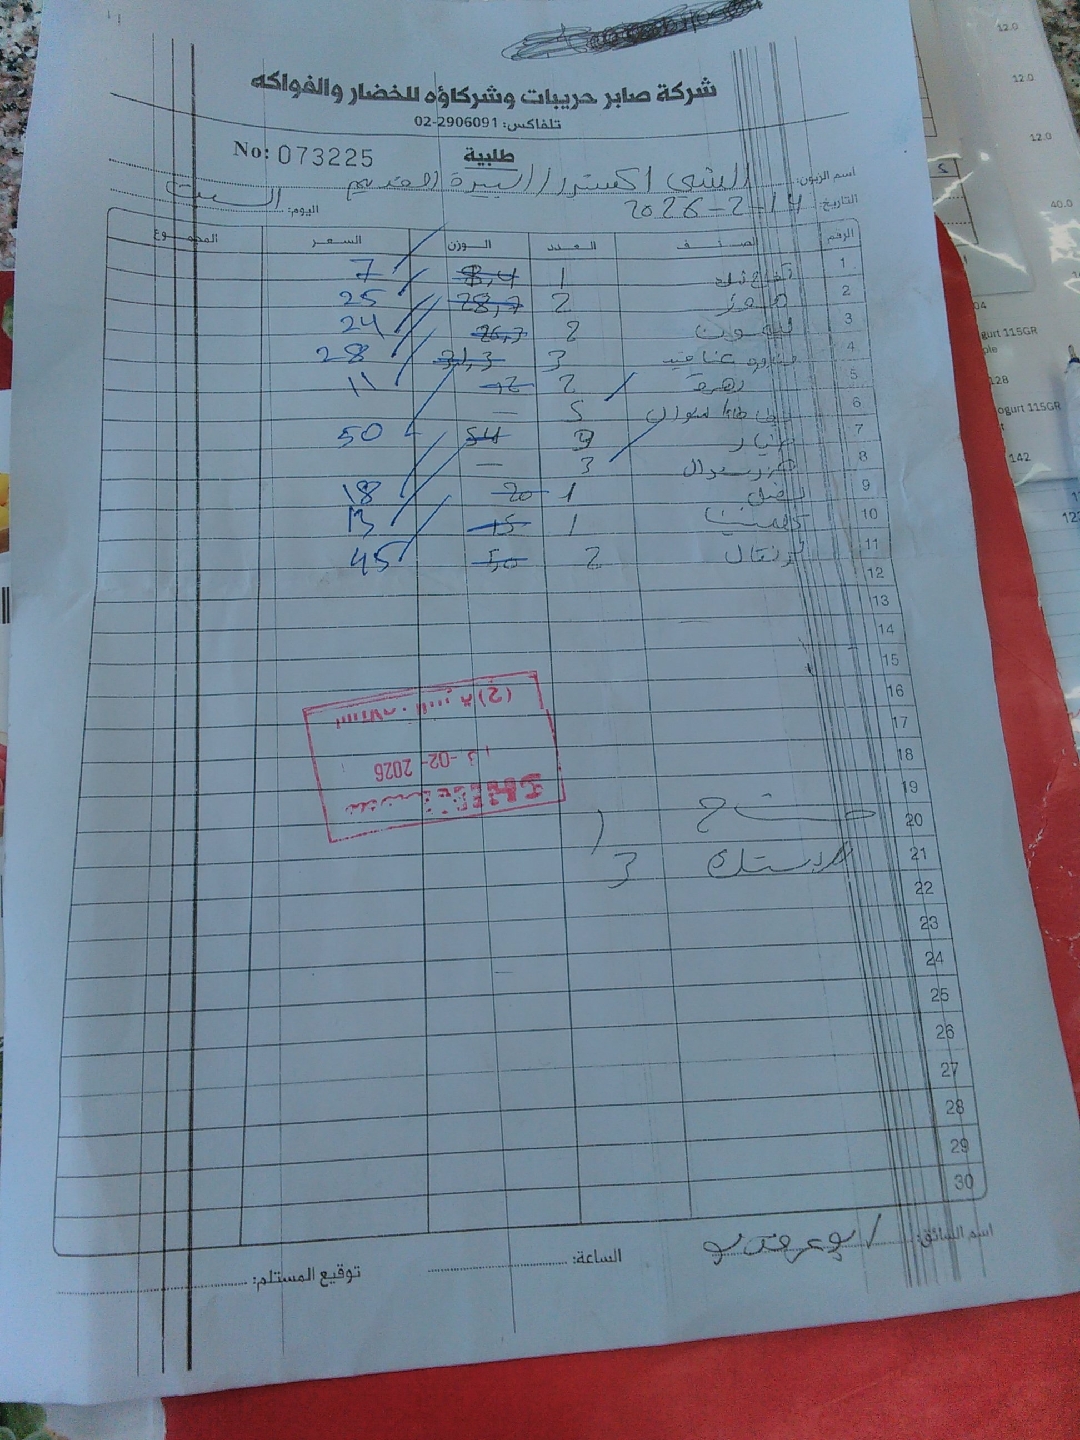 شركة صابر حريبات وشركاؤه للخضار والفواكه
تلفاكس: 02-2906091
No: 073225
طلبية
اسم الزبون: الشني اكسترا / البيرة القديم
التاريخ: 14-2-2026 اليوم: السبت
الرقم الصنف العدد الوزن السعر المجموع
1 تفاح 1 8,4 7
2 موز 2 28,7 25
3 ليمون 2 26,3 24
4 بندورة عناقيد 3 31,3 28
5 زهرة 2 12 11
6 5 —
7 خيار 3 54 50
8 3 —
9 بصل 1 20 18
10 1 15 13
11 برتقال 2 50 45
12
13
14
15
16
17
18
19
20
21 بلاستيك 3
22
23
24
25
26
27
28
29
30
(2)
13-02-2026
اسم السائق:
الساعة:
توقيع المستلم:
12.0
12.0
12.0
40.0
04
gurt 115GR
ple
128
ogurt 115GR
142